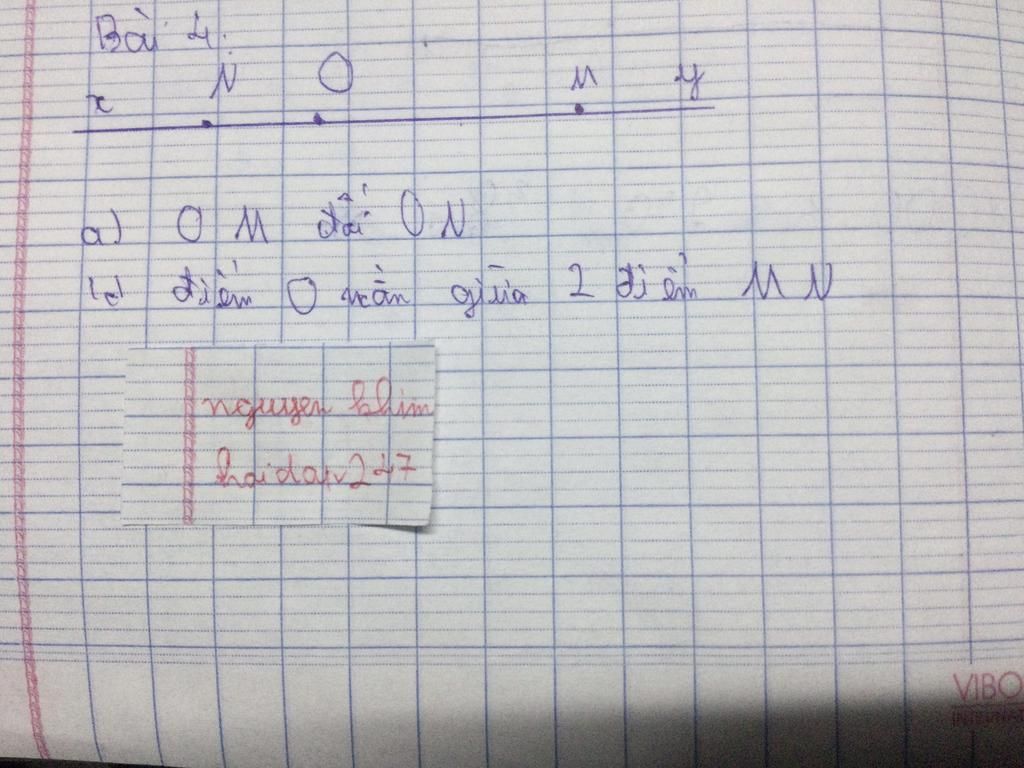 Bài 4:
x N O M y
a) OM đối ON
b) điểm O nằn giữa 2 điểm M N
nguyen khim
hoidap247
VIBO
INTERNAT